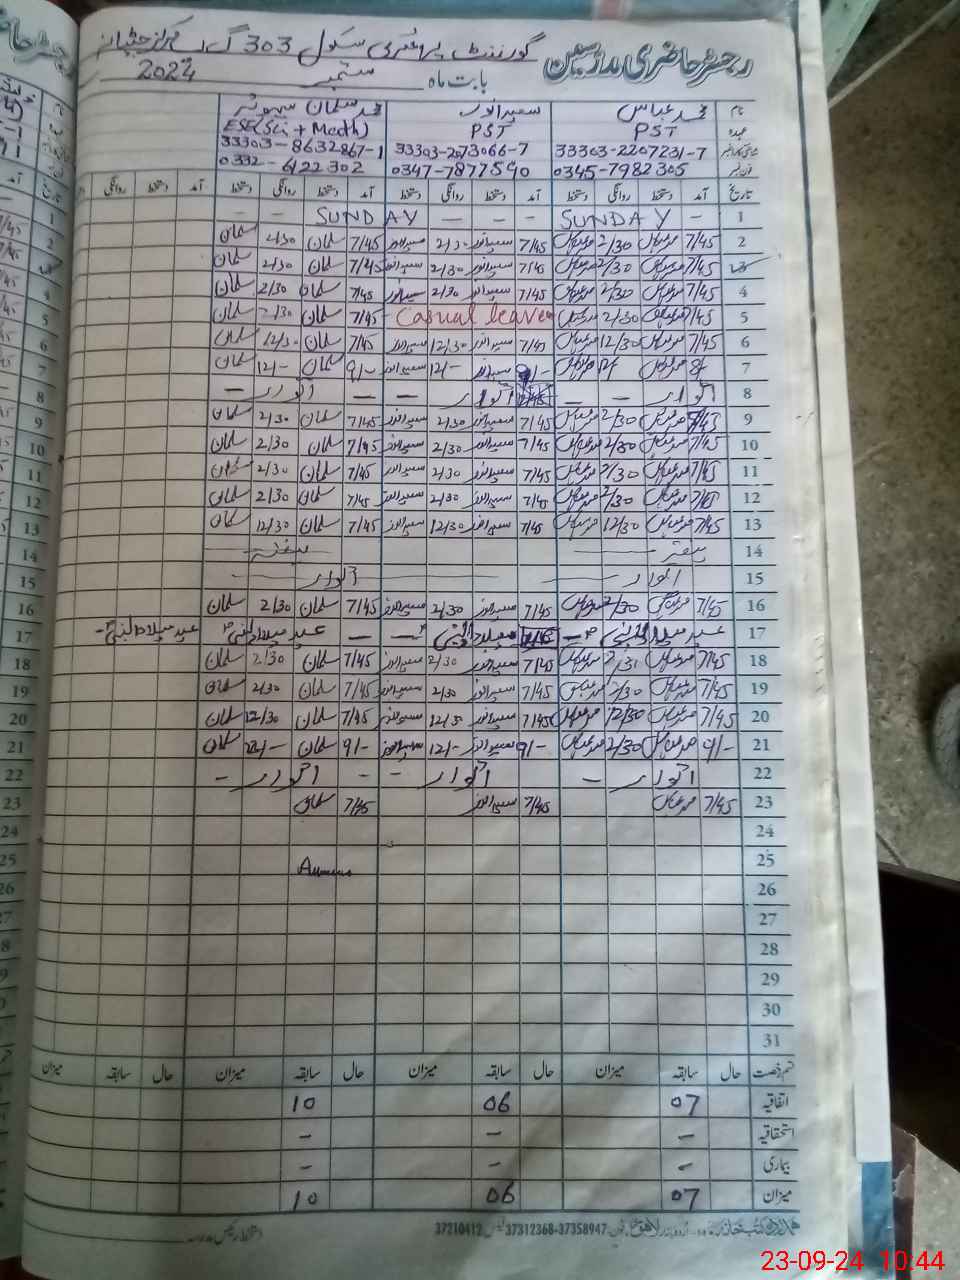 رجسٹر حاضری مدرسین گورنمنٹ پرائمری سکول 303 گ ب
بابت ماہ ستمبر 2024
نام محمد عباس سعید انور محمد سلمان
عہدہ PST PST ESE(Sci + Math)
33303-2207231-7 33303-2073066-7 33303-8632867-1
فون نمبر 0345-7982305 0347-7877590 0332-6122302
تاریخ آمد دستخط روانگی دستخط آمد دستخط روانگی دستخط آمد دستخط روانگی دستخط آمد دستخط روانگی دستخط
1 - SUNDAY - - - SUNDAY - -
2 7/45 محمد عباس 2/30 محمد عباس 7/45 سعید انور 2/30 سعید انور 7/45 سلمان 2/30 سلمان
3 7/45 محمد عباس 2/30 محمد عباس 7/45 سعید انور 2/30 سعید انور 7/45 سلمان 2/30 سلمان
4 7/45 محمد عباس 2/30 محمد عباس 7/45 سعید انور 2/30 سعید انور 7/45 سلمان 2/30 سلمان
5 7/45 محمد عباس 2/30 محمد عباس Casual leave 7/45 سلمان 2/30 سلمان
6 7/45 محمد عباس 12/30 محمد عباس 7/45 سعید انور 12/30 سعید انور 7/45 سلمان 12/30 سلمان
7 محمد عباس محمد عباس 9/- سعید انور 12/- سعید انور 9/- سلمان 12/- سلمان
8 اتوار - - اتوار - - اتوار -
9 7/45 محمد عباس 2/30 محمد عباس 7/45 سعید انور 2/30 سعید انور 7/45 سلمان 2/30 سلمان
10 7/45 محمد عباس 2/30 محمد عباس 7/45 سعید انور 2/30 سعید انور 7/45 سلمان 2/30 سلمان
11 7/45 محمد عباس 2/30 محمد عباس 7/45 سعید انور 2/30 سعید انور 7/45 سلمان 2/30 سلمان
12 7/45 محمد عباس 2/30 محمد عباس 7/45 سعید انور 2/30 سعید انور 7/45 سلمان 2/30 سلمان
13 7/45 محمد عباس 12/30 محمد عباس 7/45 سعید انور 12/30 سعید انور 7/45 سلمان 12/30 سلمان
14 ہفتہ ہفتہ
15 اتوار اتوار
16 7/45 محمد عباس 2/30 محمد عباس 7/45 سعید انور 2/30 سعید انور 7/45 سلمان 2/30 سلمان
17 عید میلاد النبی میلاد النبی عید میلاد النبی عید میلاد النبی
18 7/45 محمد عباس 2/31 محمد عباس 7/45 سعید انور 2/30 سعید انور 7/45 سلمان 2/30 سلمان
19 7/45 محمد عباس 2/30 محمد عباس 7/45 سعید انور 2/30 سعید انور 7/45 سلمان 2/30 سلمان
20 7/45 محمد عباس 12/30 محمد عباس 7/45 سعید انور 12/30 سعید انور 7/45 سلمان 12/30 سلمان
21 9/- محمد عباس 2/30 محمد عباس 9/- سعید انور 12/- سعید انور 9/- سلمان 12/- سلمان
22 اتوار - اتوار - - اتوار -
23 7/45 محمد عباس 7/45 سعید انور 7/45 سلمان
24
25
26
27
28
29
30
31
قسم رخصت حال سابقہ میزان حال سابقہ میزان حال سابقہ میزان حال سابقہ میزان
اتفاقیہ 07 06 10
استحقاقیہ - - -
بیماری - - -
میزان 07 06 10
اردو بازار لاہور فون: 37358947-37312368 فیکس 37210412
23-09-24 10:44